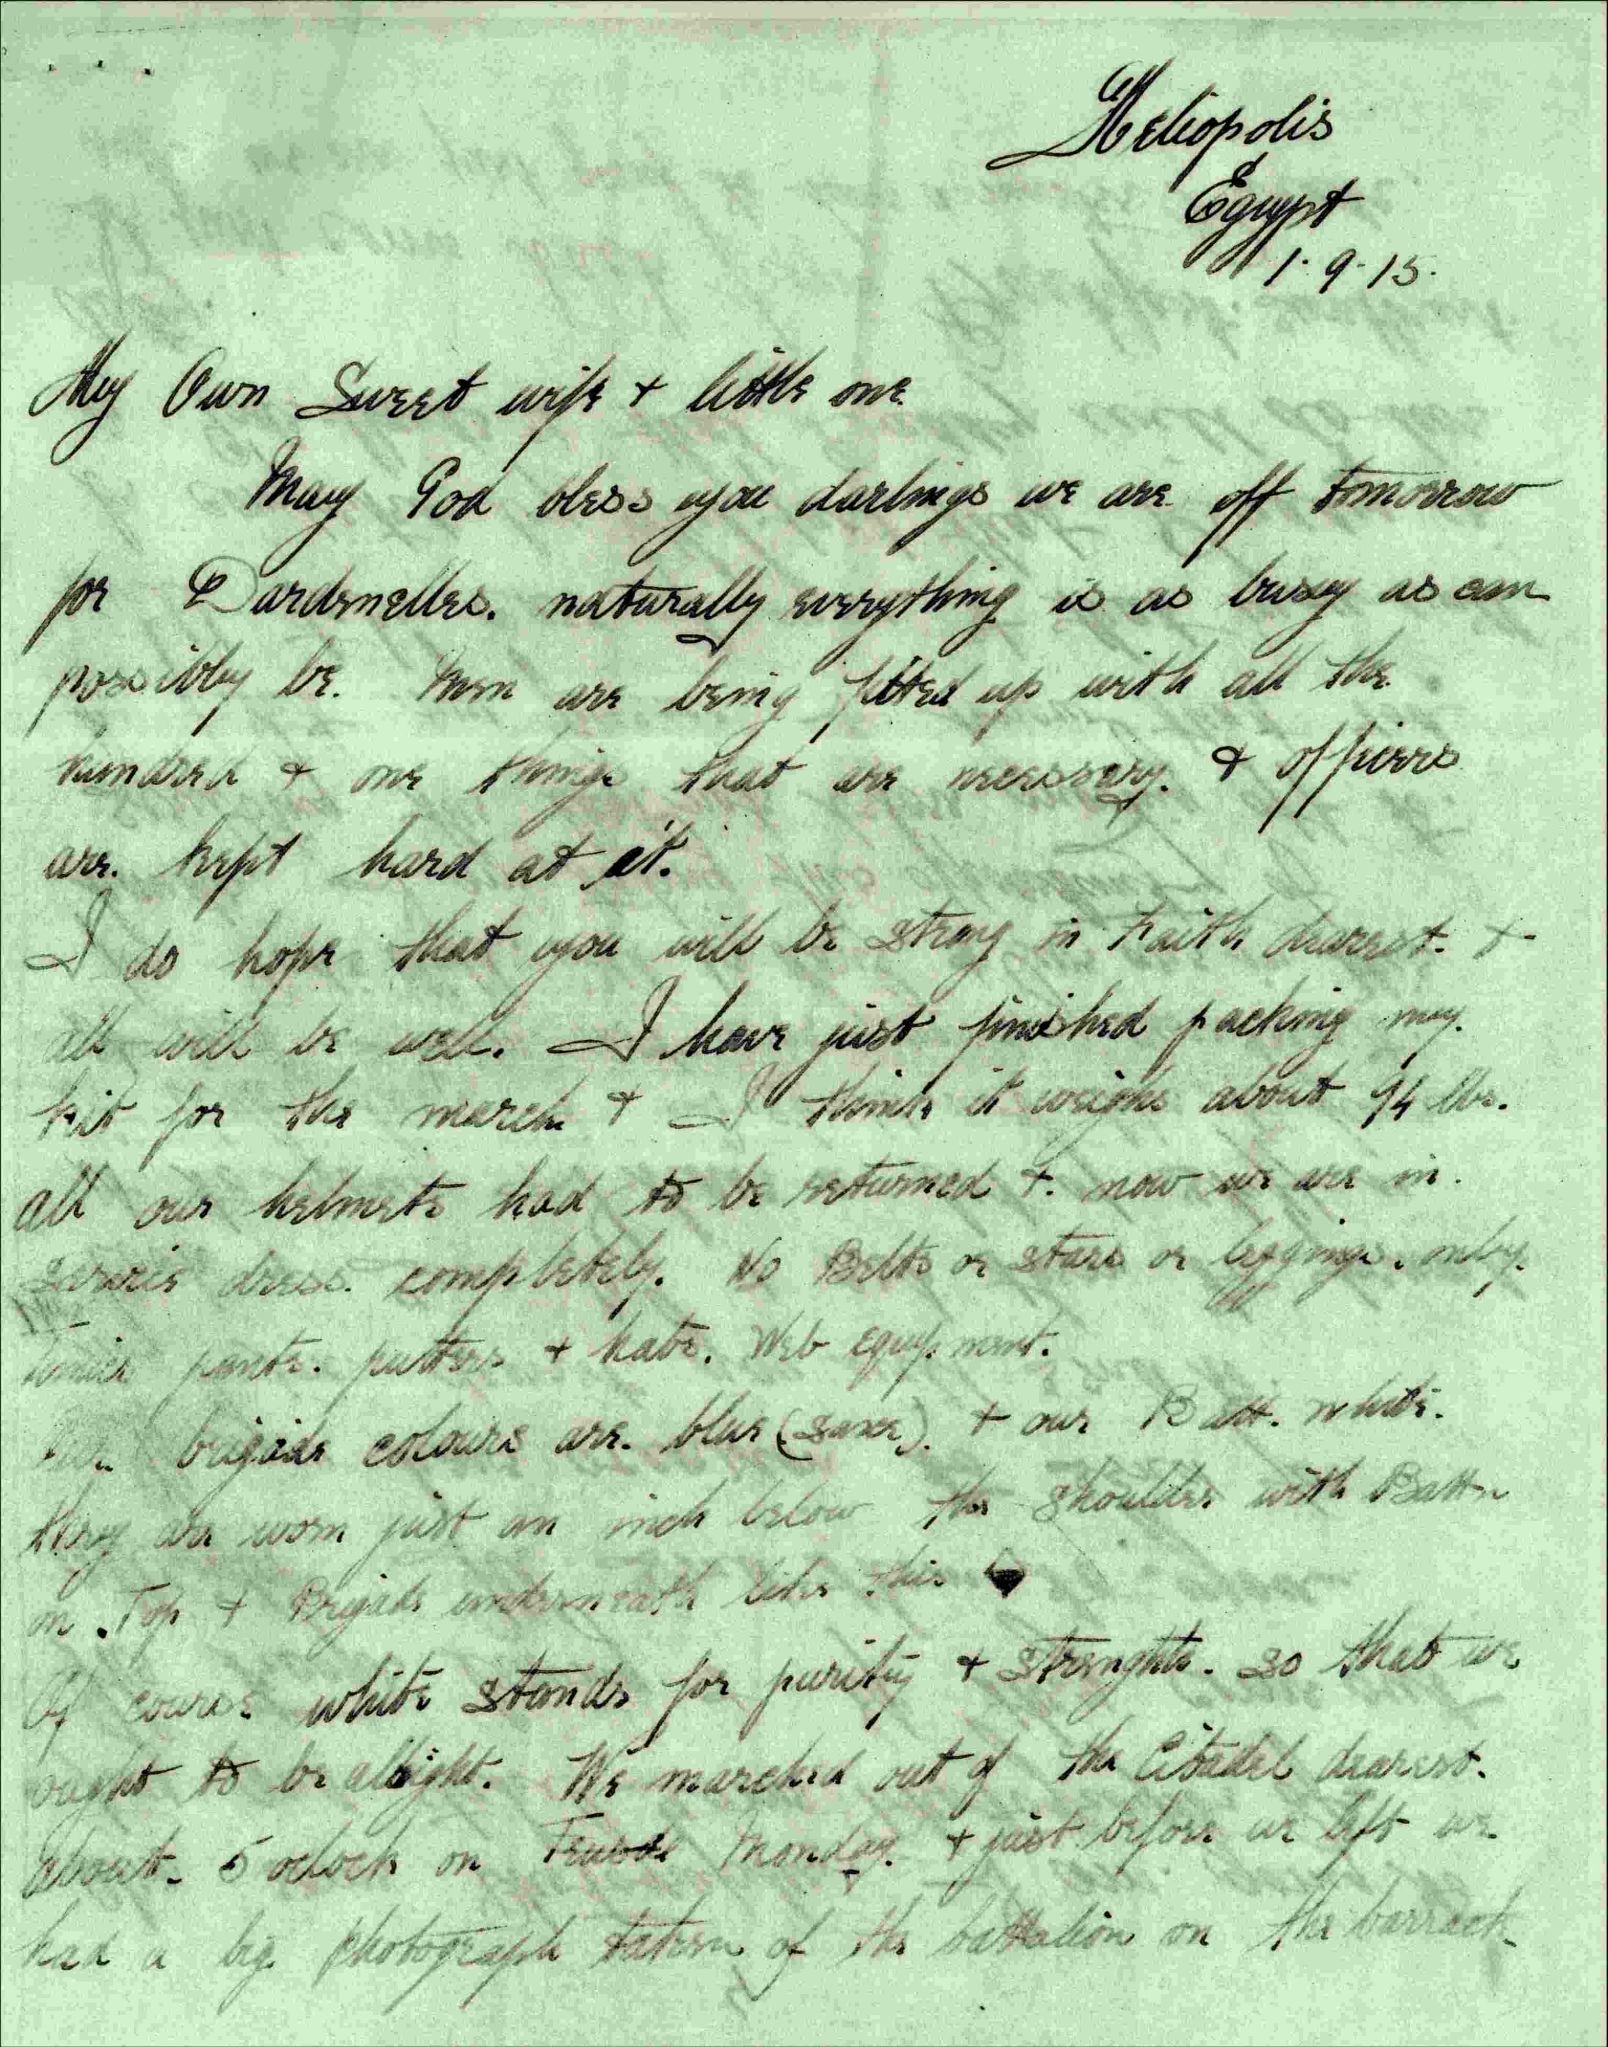 Heliopolis
Egypt
1.9.15.
My Own Sweet wife + little one.
May God bless you darlings we are off tomorrow
for Dardenelles. naturally everything is as busy as can
possibly be. Men are being fitted up with all the
hundred + one things that are necessary. + officers
are kept hard at it.
I do hope that you will be strong in Faith dearest. +
all will be well. I have just finished packing my
kit for the march + I think it weighs about 94 lbs.
all our helmets had to be returned +. now we are in.
dress. completely. No Belts or stars or leggings. only.
pants. putters + hats. Web equipment.
brigade colours are. blue (saxe). + our Batt. white.
they are worn just an inch below the shoulder with Battn
on Top + Brigade underneath like this
Of course white stands for purity + strenghts. so that we
ought to be allright. We marched out of the Citadel dearest.
about. 5 oclock on Monday. + just before we left we
had a big photograph taken of the battalion on the barrack